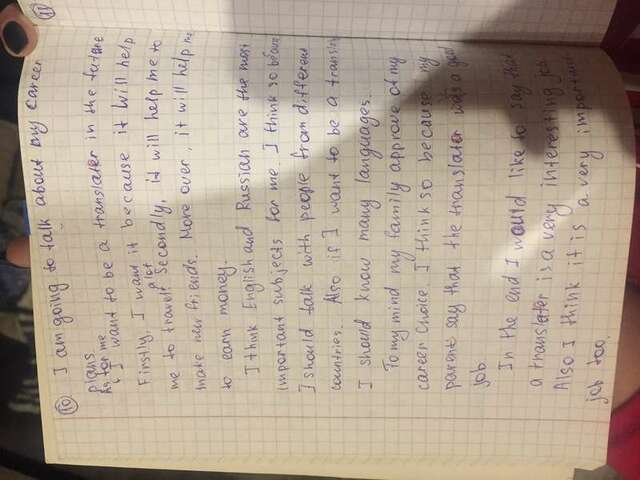 10 I am going to talk about my career
plans
As for me
, I want to be a translater in the future
Firstly, I want it because it will help
me to travel a lot. Secondly, it will help me to
make new friends. More over, it will help me
to earn money.
I think English and Russian are the most
important subjects for me. I think so because
I should talk with people from different
countries. Also if I want to be a
I should know many languages.
To my mind my family approve of my
career choice. I think so because my
parent say that the translater was a good
job
In the end I would like to say that
a translater is a very interesting job
Also I think it is a very important
job too.
11